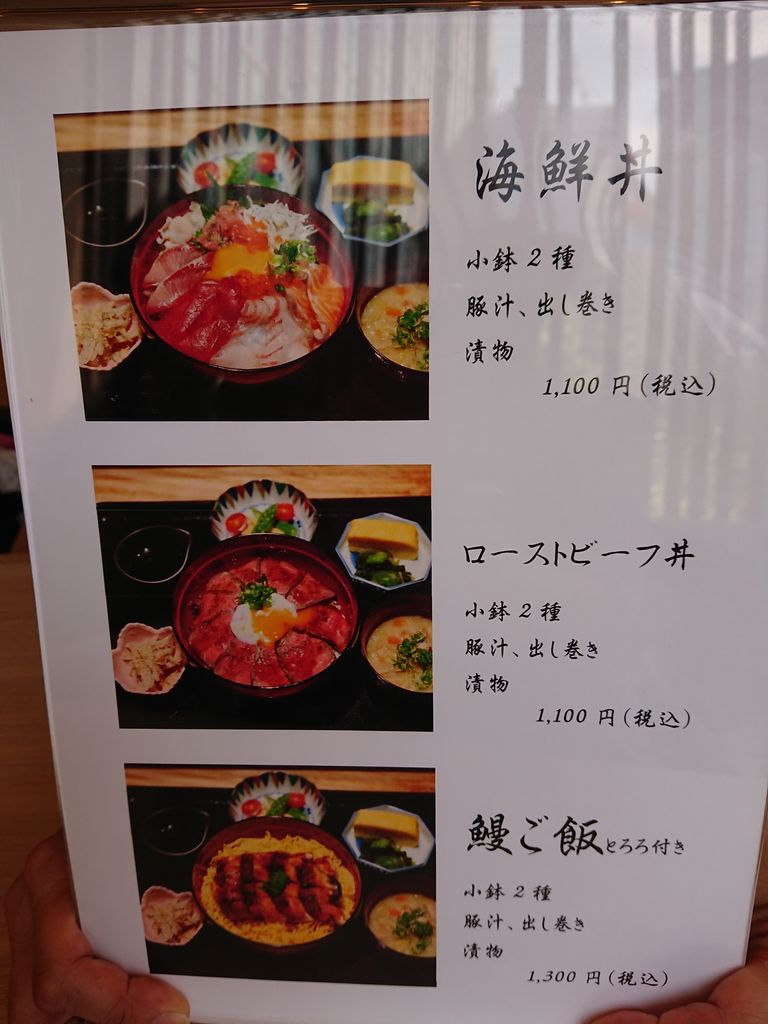 海鮮丼
小鉢２種
豚汁、出し巻き
漬物
1,100 円（税込）
ローストビーフ丼
小鉢２種
豚汁、出し巻き
漬物
1,100 円（税込）
鰻ご飯とろろ付き
小鉢２種
豚汁、出し巻き
漬物
1,300 円（税込）